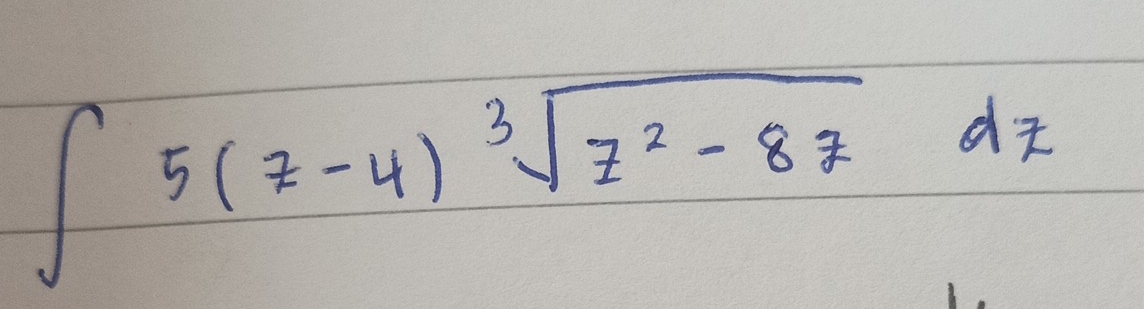 ∫ 5(z-4) ∛(z² - 8z) dz